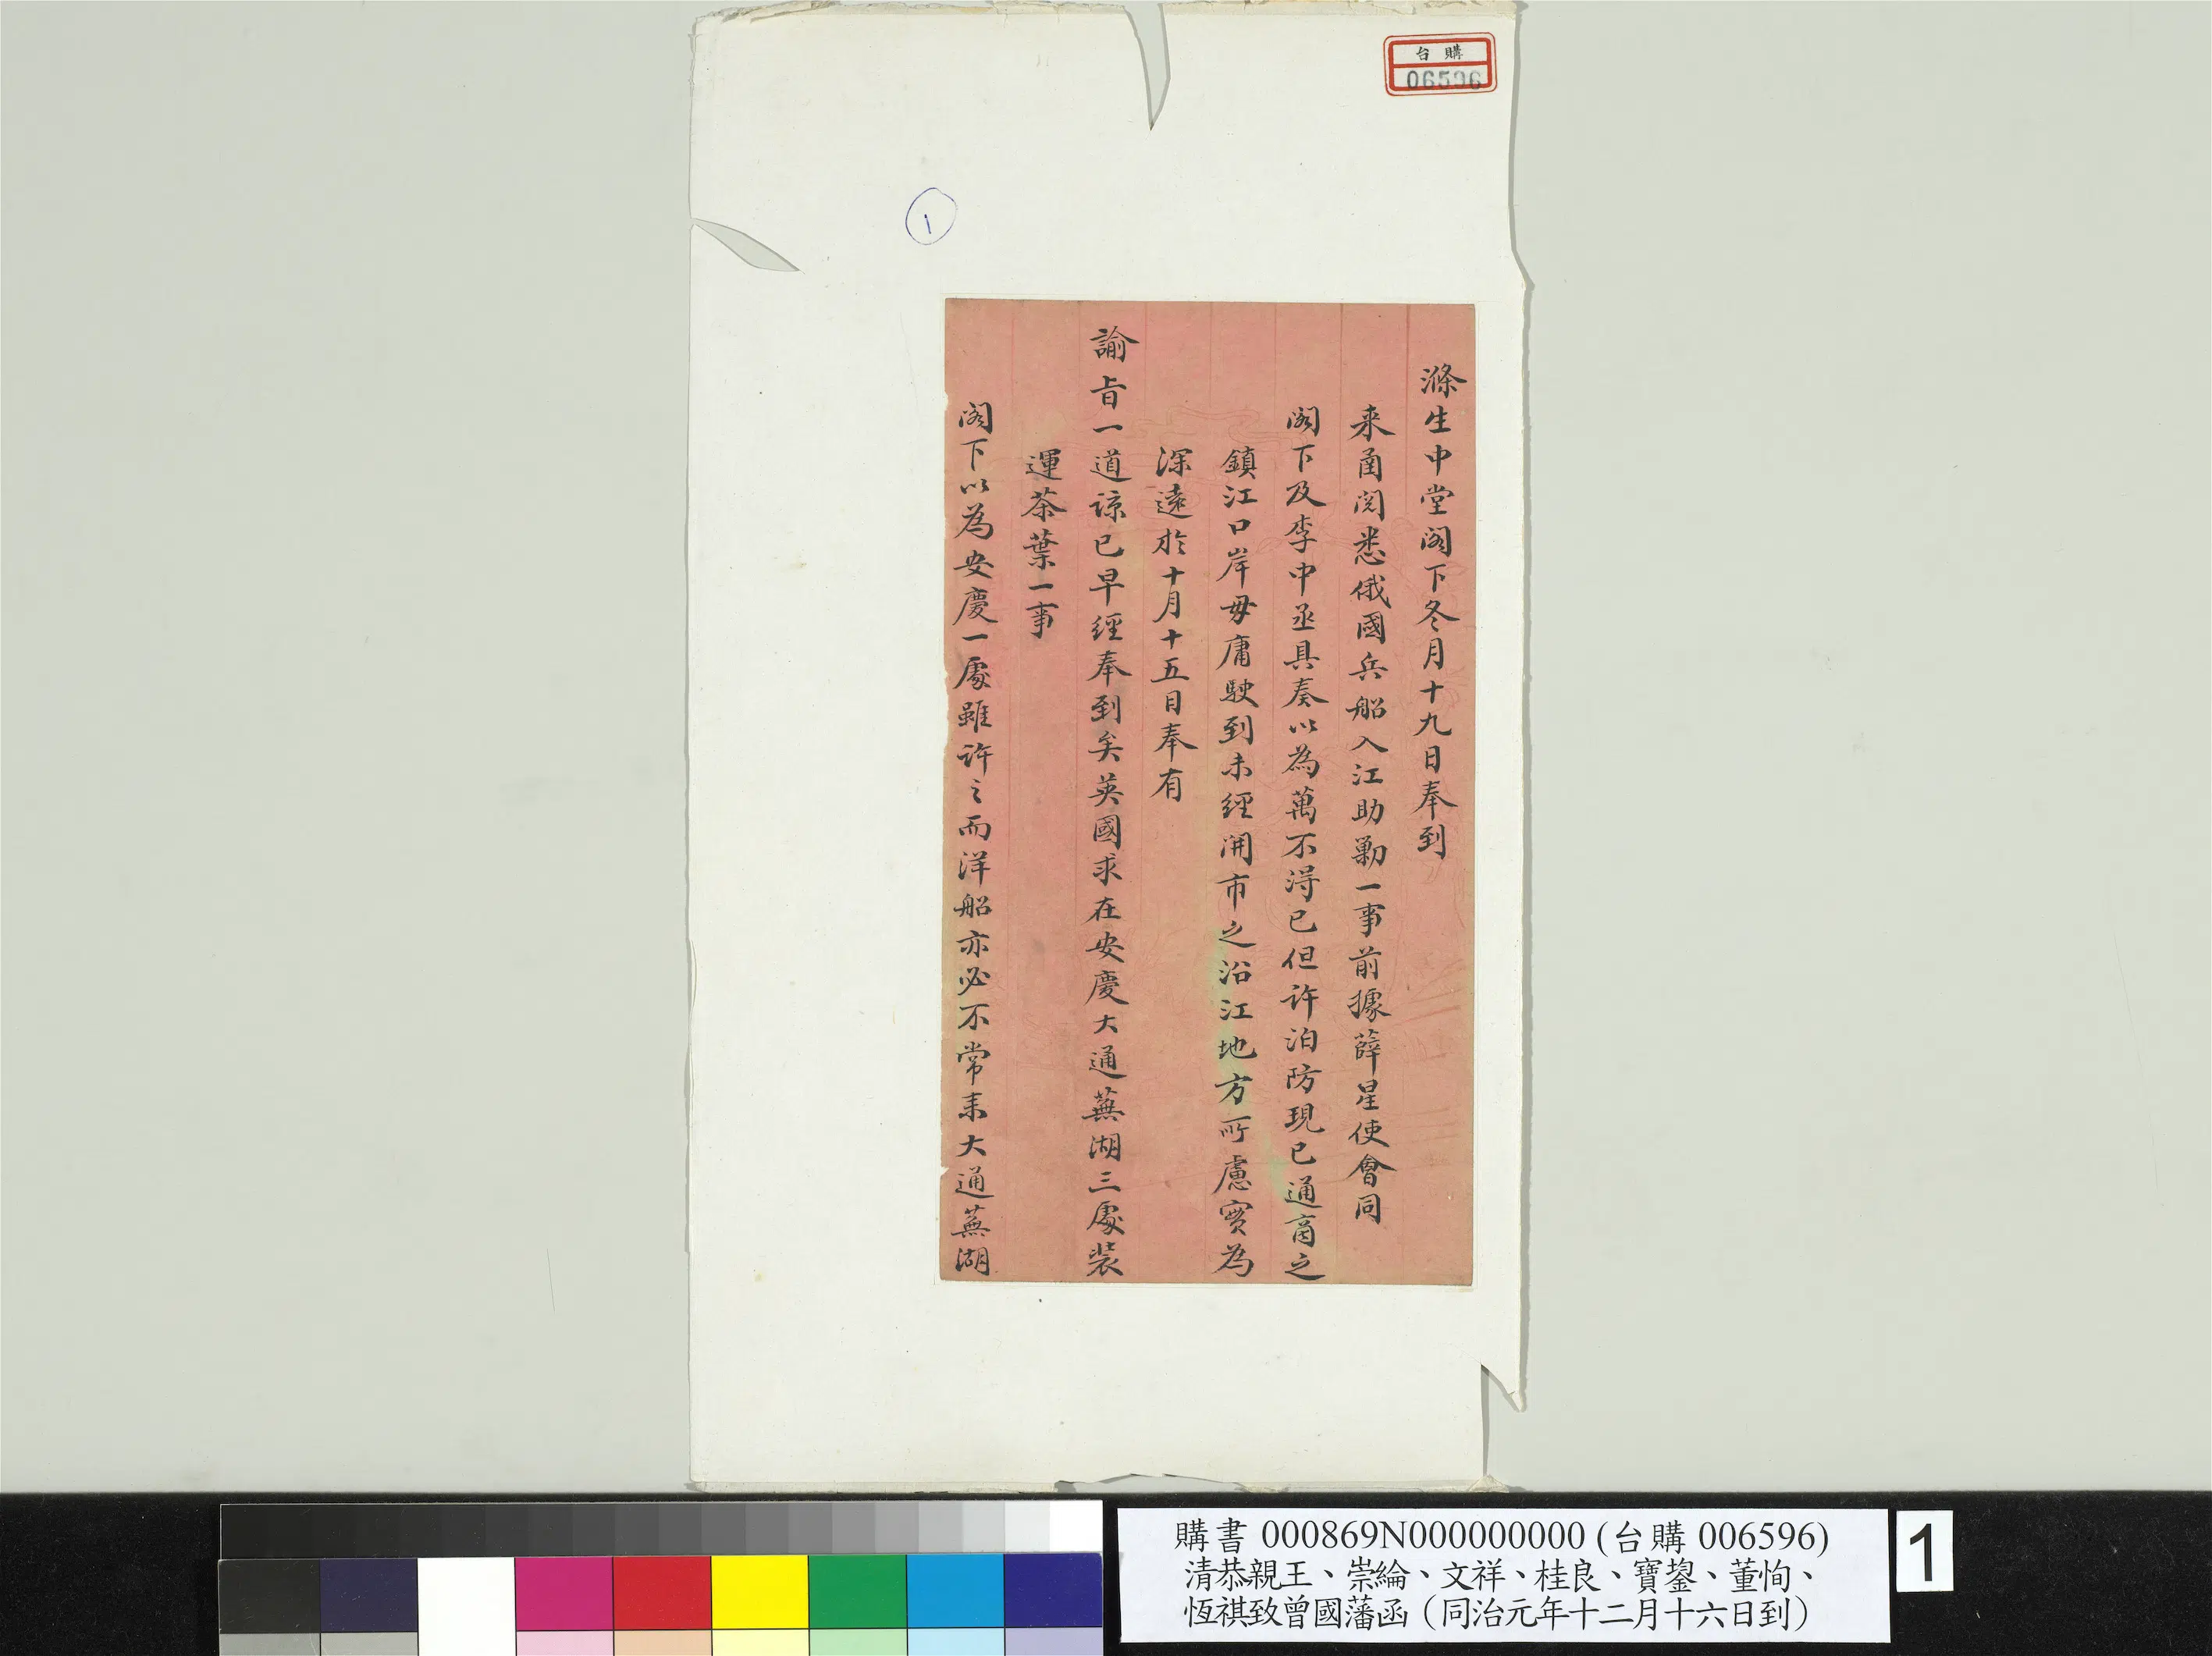 台購
06596
1
滌生中堂閣下冬月十九日奉到
来函閱悉俄國兵船入江助勦一事前據薛星使會同
閣下及李中丞具奏以為萬不得已但許泊防現已通商之
鎮江口岸毋庸駛到未經開市之沿江地方所慮實為
深遠於十月十五日奉有
諭旨一道諒已早經奉到矣英國求在安慶大通蕪湖三處裝
運茶葉一事
閣下以為安慶一處雖許之而洋船亦必不常来大通蕪湖
購書 000869N000000000 (台購 006596)
清恭親王、崇綸、文祥、桂良、寶鋆、董恂、
恆祺致曾國藩函（同治元年十二月十六日到）
1